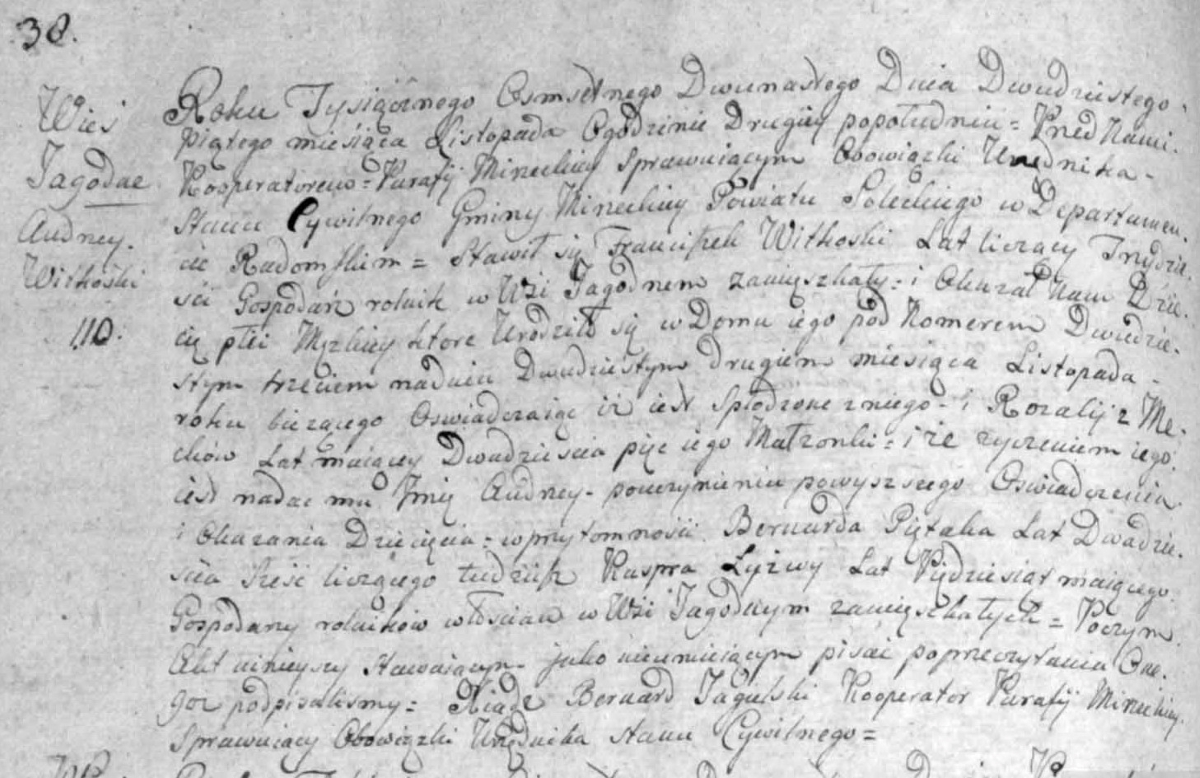 38.
Wieś
Jagodne
Andrzey
Witkoski
110.
Roku Tysiącznego Osmsetnego Dwunastego Dnia Dwudziestego
Piątego miesiąca Listopada O godzinie Drugiey popołudniu = Przed Nami
Kooperatorem = Parafij Mineckiey sprawuiącym Obowiązki Urzędnika
Stanu Cywilnego Gminy Mineckiey Powiatu Soleckiego w Departamen
cie Radomskim = Stawił się Franciszek Witkoski Lat liczący Trzydzie
ści Gospodarz rolnik w Wsi Jagodnem zamięszkały = i Okazał Nam Dzie
cię płci Męzkiey ktore Urodziło się w Domu iego pod Nomerem Dwudzie
stym trzeciem na dniu Dwudziestym drugiem miesiąca Listopada
roku bieżącego Oswiadczaiąc iż iest spłodzone zniego = i Rozalij z Me
chów Lat maiącey Dwadzieścia pięc iego Małżonki = i że życzeniem iego
iest nadac mu Jmię Andrzey = pouczynieniu powyszszego Oswiadczenia
i Okazania Dziecięcia = w przytomnosci Bernarda Piętaka Lat Dwadzie
ścia sześć liczącego tudziesz Kaspra Łyżwy Lat Pięćdziesiąt maiącego
Gospodarzy rolników włościan w Wsi Jagodnym zamięszkałych = Poczym
Akt ninieyszy Stawaiącym jako nieumieiącym pisać poprzeczytaniu One
goz podpisalismy = Xiądz Bernard Jagulski Kooperator Parafij Mineckiey
Sprawuiący Obowiązki Urzędnika stanu Cywilnego =